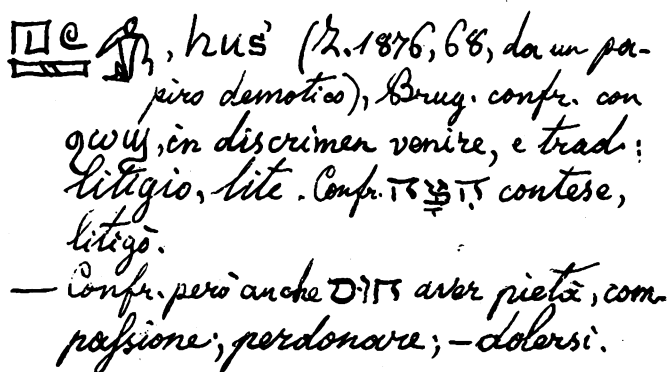 , huś (Z. 1876, 68, da un pa-
piro demotico), Brug. confr. con
ϩⲱϣ, in discrimen venire, e trad:
litigio, lite. Confr. contese,
litigò.
— Confr. però anche חוס aver pietà, com-
passione; perdonare; – dolersi.